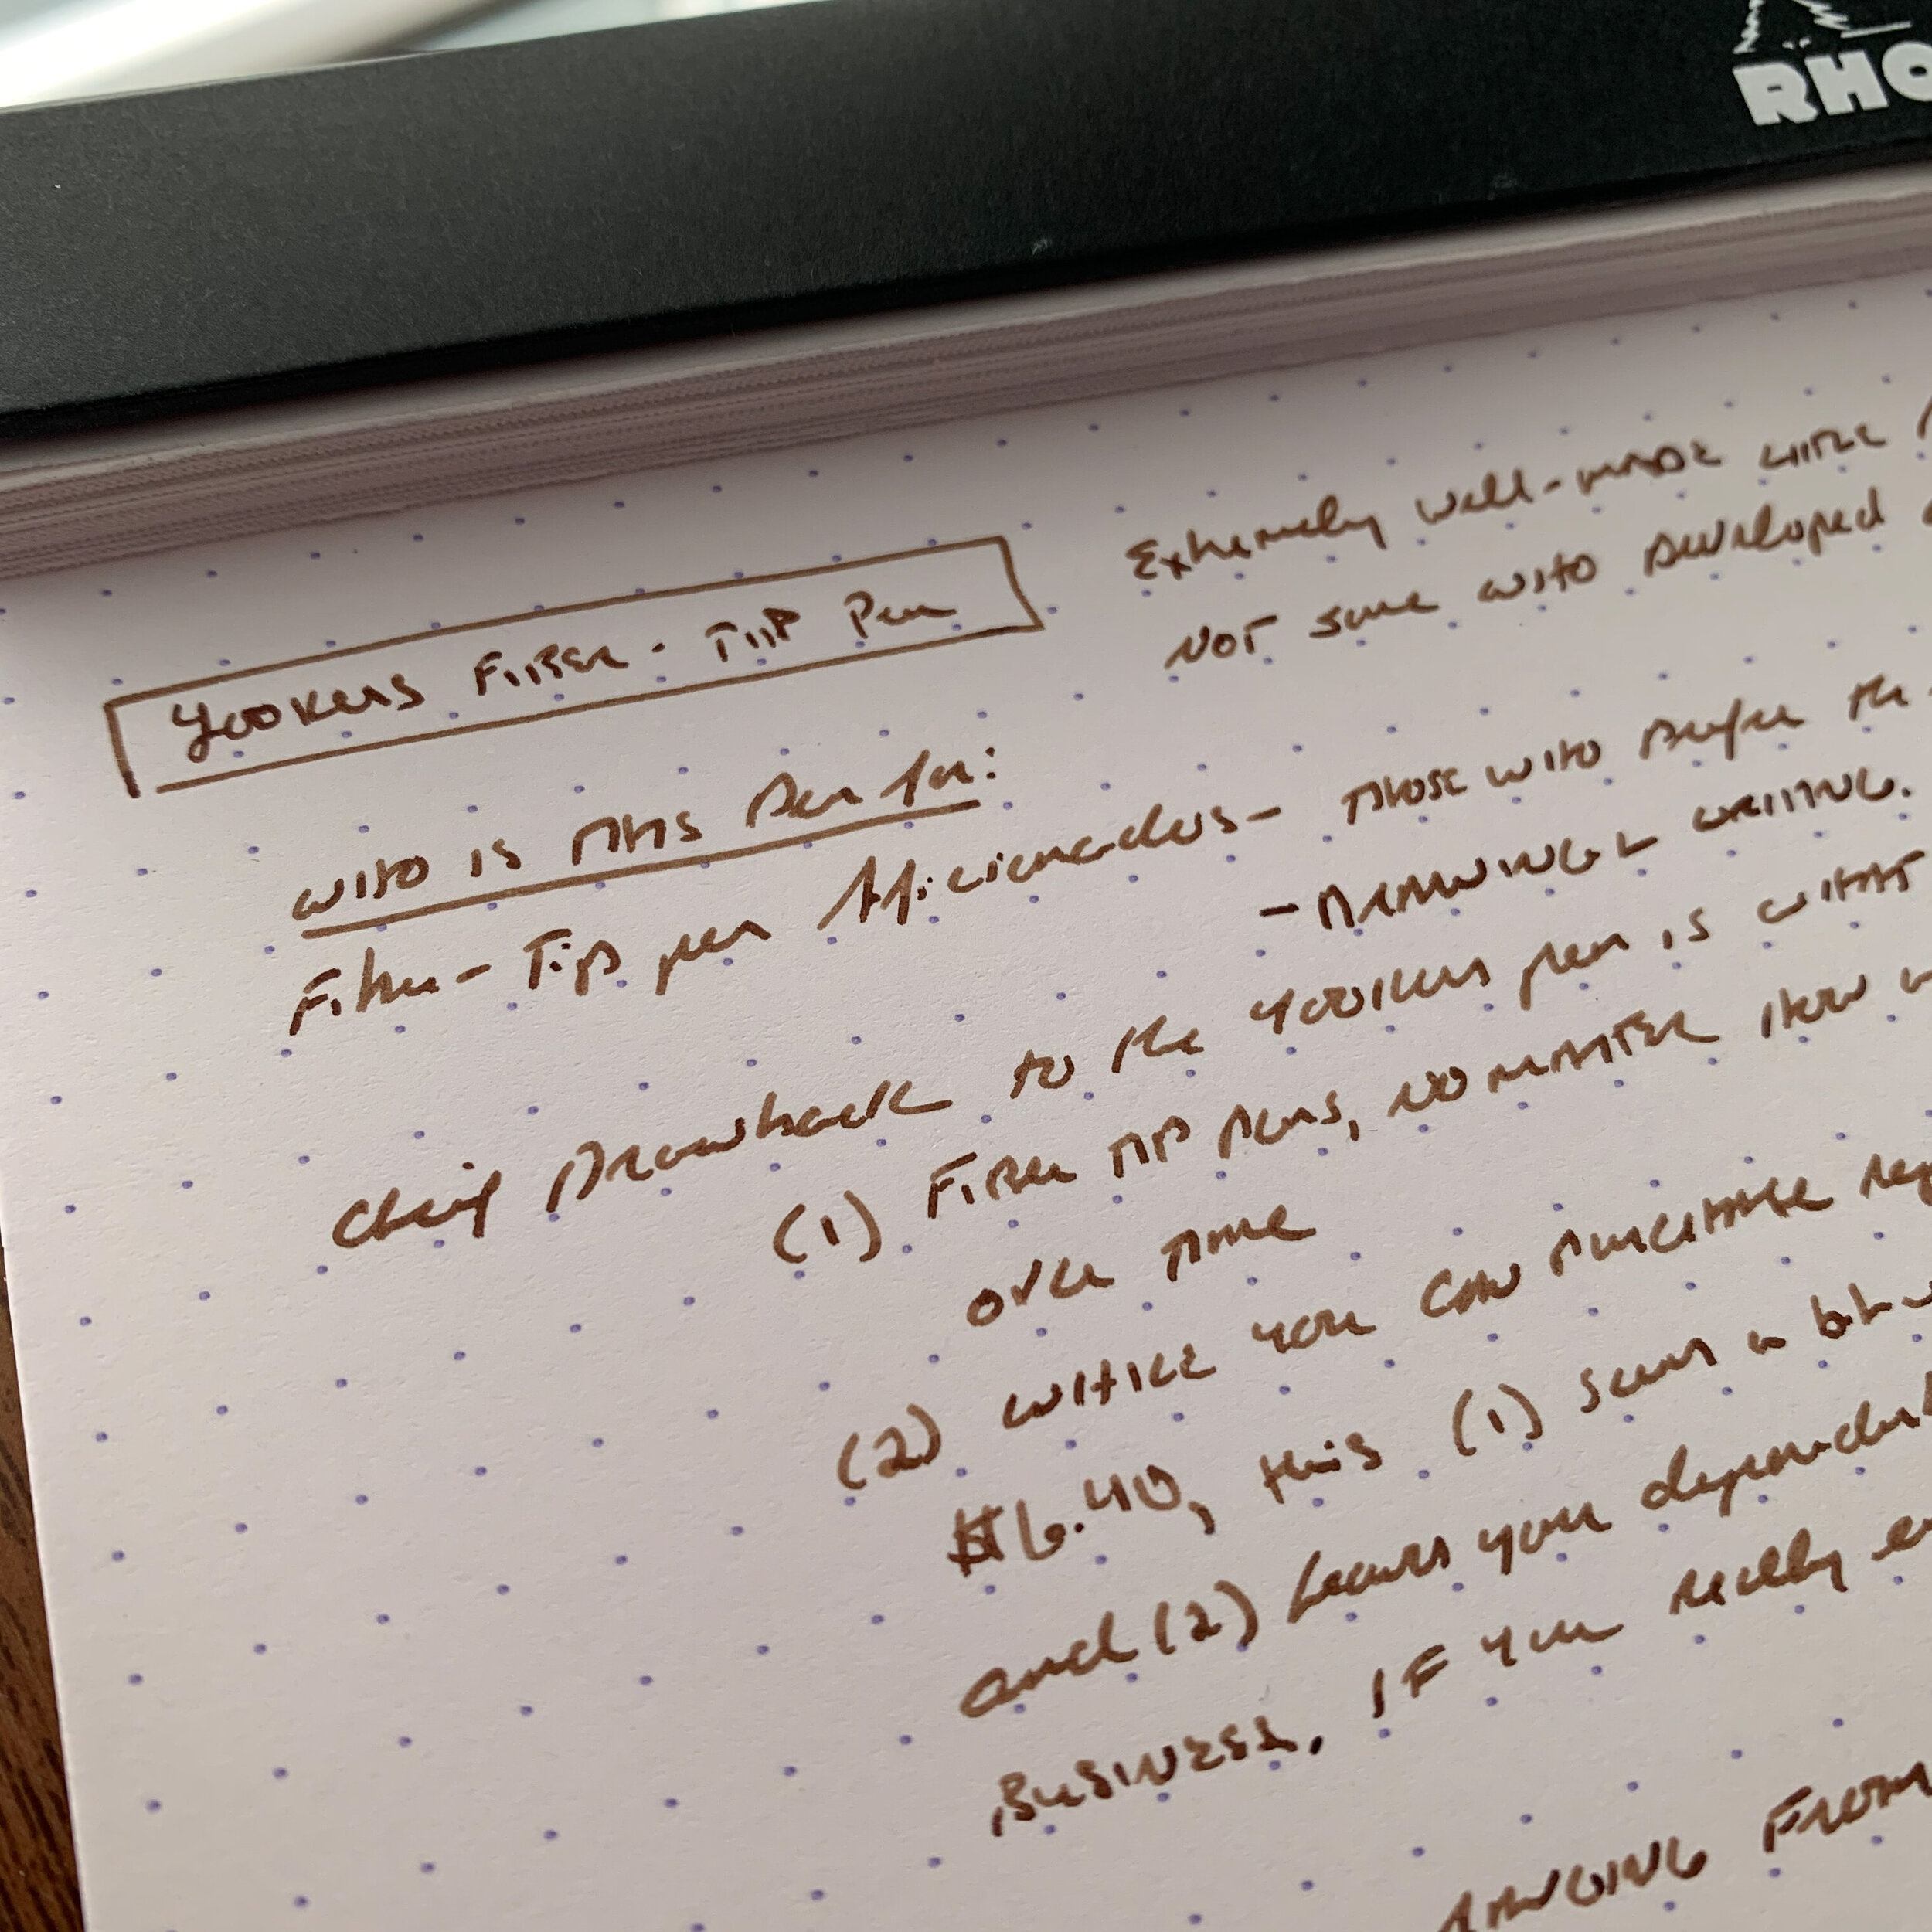 RHO
Yookers Fiber-Tip Pen
Extremely well-made little
NOT some who developed
Who is this pen for:
Fiber-Tip pen Aficionados - those who prefer the
- Drawing & writing.
Chief Drawback to the Yookers pen is what
(1) Fiber tip pens, no matter how
over time
(2) while you can purchase rep
$6.40, this (1) seems a bit
and (2) leaves you dependent
Business. If you really
anging from